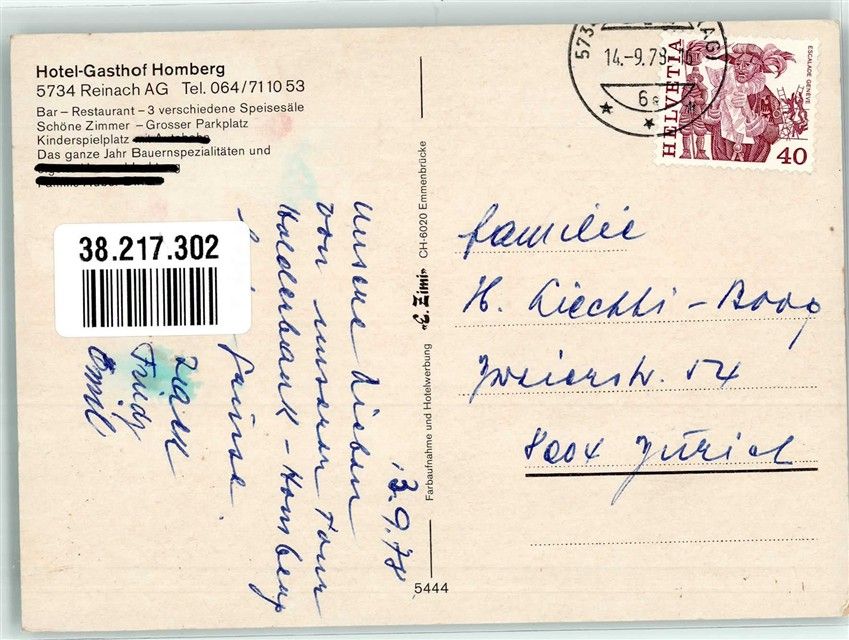 Hotel-Gasthof Homberg
5734 Reinach AG Tel. 064/71 10 53
Bar – Restaurant – 3 verschiedene Speisesäle
Schöne Zimmer – Grosser Parkplatz
Kinderspielplatz
Das ganze Jahr Bauernspezialitäten und
38.217.302
13.9.78
Unsere Lieben
von unserer Tour
Holderbank – Homberg
Grüsse
Fridy
Emil
Farbaufnahme und Hotelwerbung «E. Zimi» CH-6020 Emmenbrücke
5444
573
AG)
14.-9.78
6
HELVETIA
ESCALADE GENÈVE
40
Familie
H. Liechti – Bopp
Zweierstr. 54
8004 Zürich